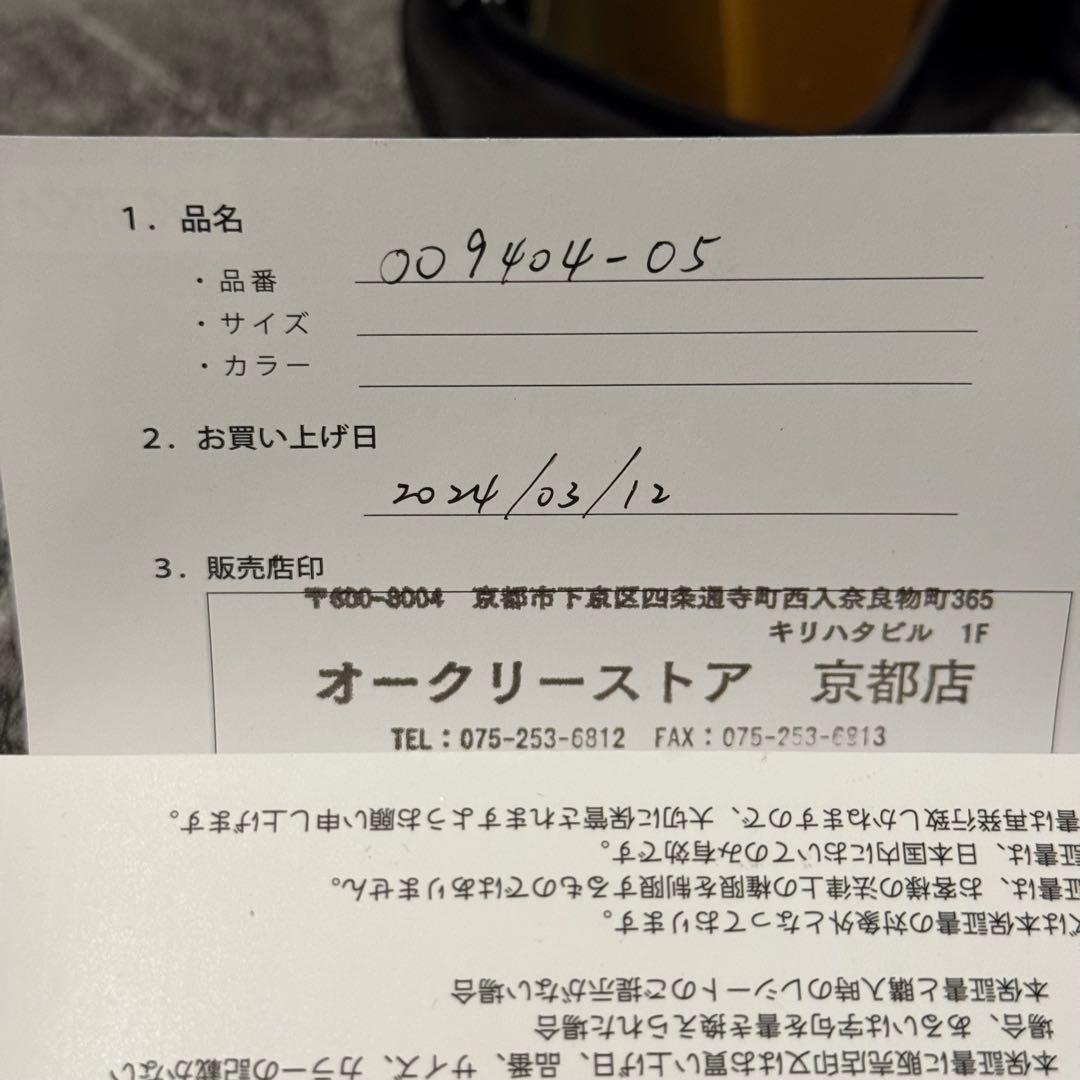 1. 品名
・品番 009404-05
・サイズ
・カラー
2. お買い上げ日
2024/03/12
3. 販売店印
〒600-8004 京都市下京区四条通寺町西入奈良物町365
キリハタビル 1F
オークリーストア 京都店
TEL：075-253-6812 FAX：075-253-6813
本保証書に販売店印又はお買い上げ日、品番、サイズ、カラーの記載がない
場合、あるいは字句を書き換えられた場合
本保証書と購入時のレシートのご提示がない場合
は本保証書の対象外となっております。
証書は、お客様の法律上の権限を制限するものではありません。
証書は、日本国内においてのみ有効です。
書は再発行致しかねますので、大切に保管されますようお願い申し上げます。